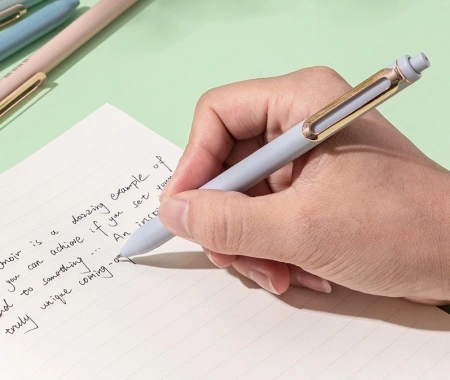 moir is a dazzling example of
you can achieve if you set your
nd to something... An inspi
truly unique coming-o